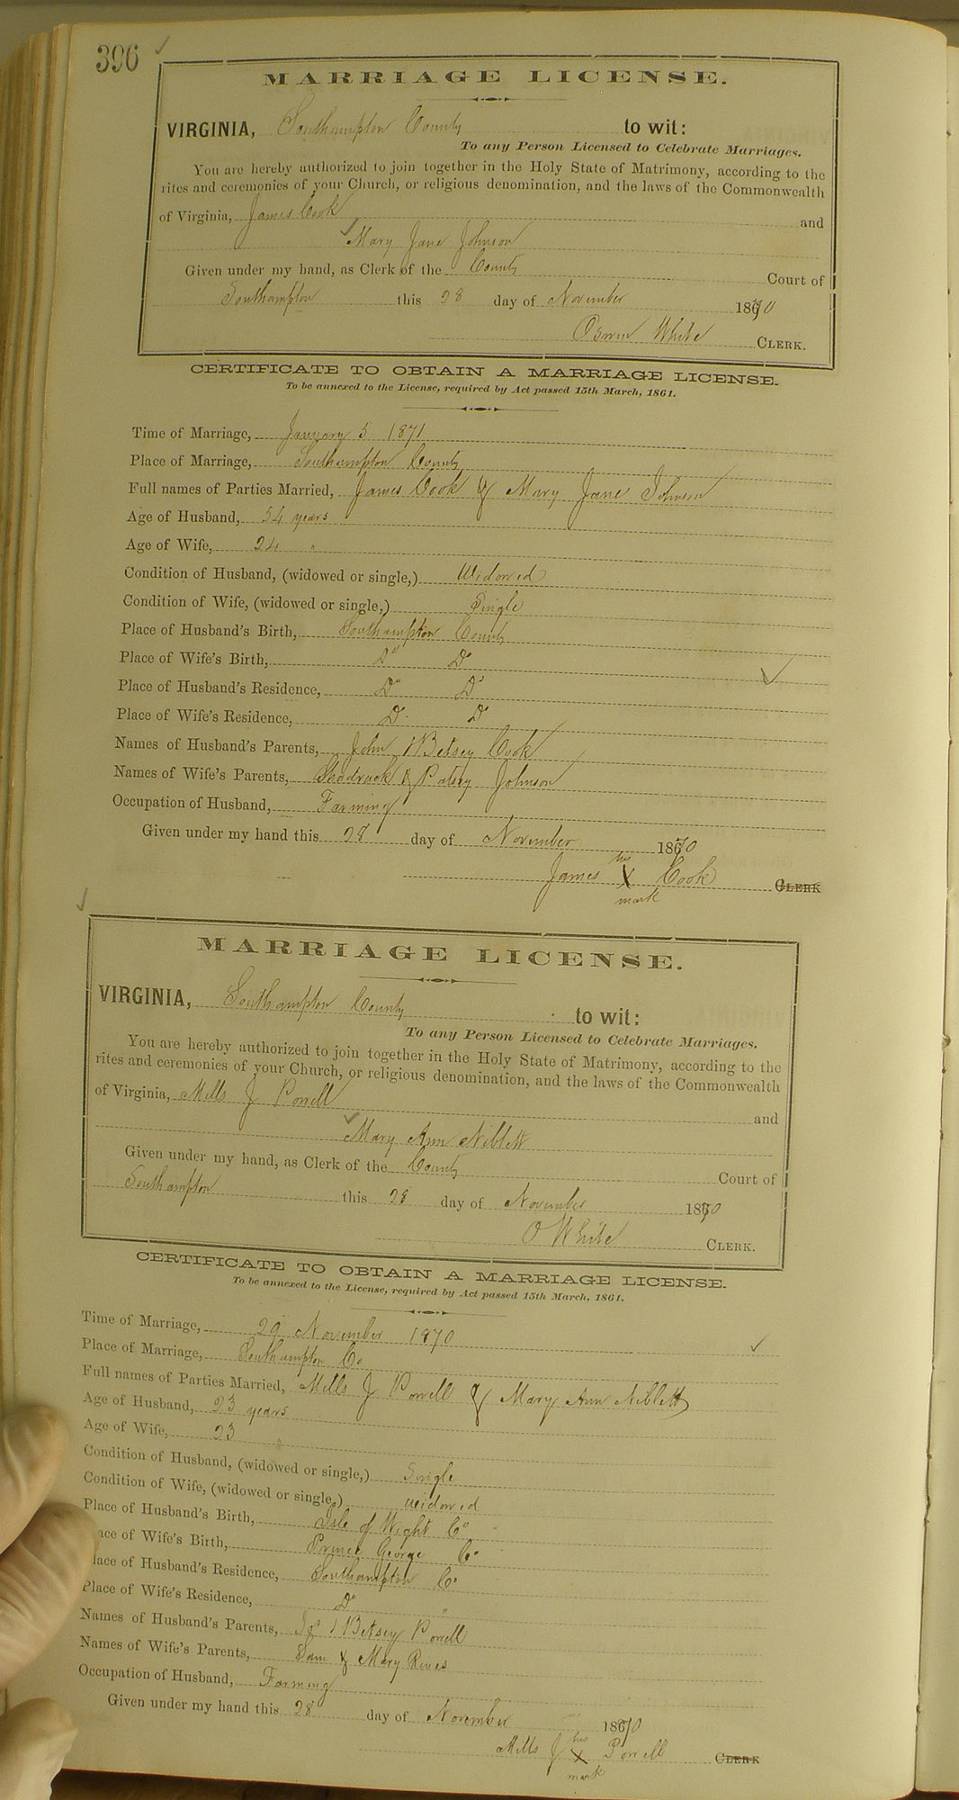 396
MARRIAGE LICENSE.
VIRGINIA, Southampton County to wit:
To any Person Licensed to Celebrate Marriages.
You are hereby authorized to join together in the Holy State of Matrimony, according to the
rites and ceremonies of your Church, or religious denomination, and the laws of the Commonwealth
of Virginia, James Cook and
Mary Jane Johnson
Given under my hand, as Clerk of the County Court of
Southampton this 28 day of November 1870
White CLERK.
CERTIFICATE TO OBTAIN A MARRIAGE LICENSE.
To be annexed to the License, required by Act passed 15th March, 1861.
Time of Marriage, January 5 1871
Place of Marriage, Southampton County
Full names of Parties Married, James Cook & Mary Jane Johnson
Age of Husband, 34 years
Age of Wife, 24 "
Condition of Husband, (widowed or single,) Widowed
Condition of Wife, (widowed or single,) Single
Place of Husband's Birth, Southampton County
Place of Wife's Birth, Do Do
Place of Husband's Residence, Do Do
Place of Wife's Residence, Do Do
Names of Husband's Parents, John & Betsey Cook
Names of Wife's Parents, Shadrack & Patsey Johnson
Occupation of Husband, Farming
Given under my hand this 28 day of November 1870
his
James X Cook CLERK
mark
MARRIAGE LICENSE.
VIRGINIA, Southampton County to wit:
To any Person Licensed to Celebrate Marriages.
You are hereby authorized to join together in the Holy State of Matrimony, according to the
rites and ceremonies of your Church, or religious denomination, and the laws of the Commonwealth
of Virginia, Mills J Powell and
Mary Ann Niblett
Given under my hand, as Clerk of the County Court of
Southampton this 28 day of November 1870
O White CLERK.
CERTIFICATE TO OBTAIN A MARRIAGE LICENSE.
To be annexed to the License, required by Act passed 15th March, 1861.
Time of Marriage, 29 November 1870
Place of Marriage, Southampton Co
Full names of Parties Married, Mills J Powell & Mary Ann Niblett
Age of Husband, 23 years
Age of Wife, 23 "
Condition of Husband, (widowed or single,) Single
Condition of Wife, (widowed or single,) widowed
Place of Husband's Birth, Isle of Wight Co
ace of Wife's Birth, Prince George Co
lace of Husband's Residence, Southampton Co
Place of Wife's Residence, Do "
Names of Husband's Parents, & Betsey Powell
Names of Wife's Parents, Sam & Mary Rives
Occupation of Husband, Farming
Given under my hand this 28 day of November 1870
his
Mills J X Powell CLERK
mark